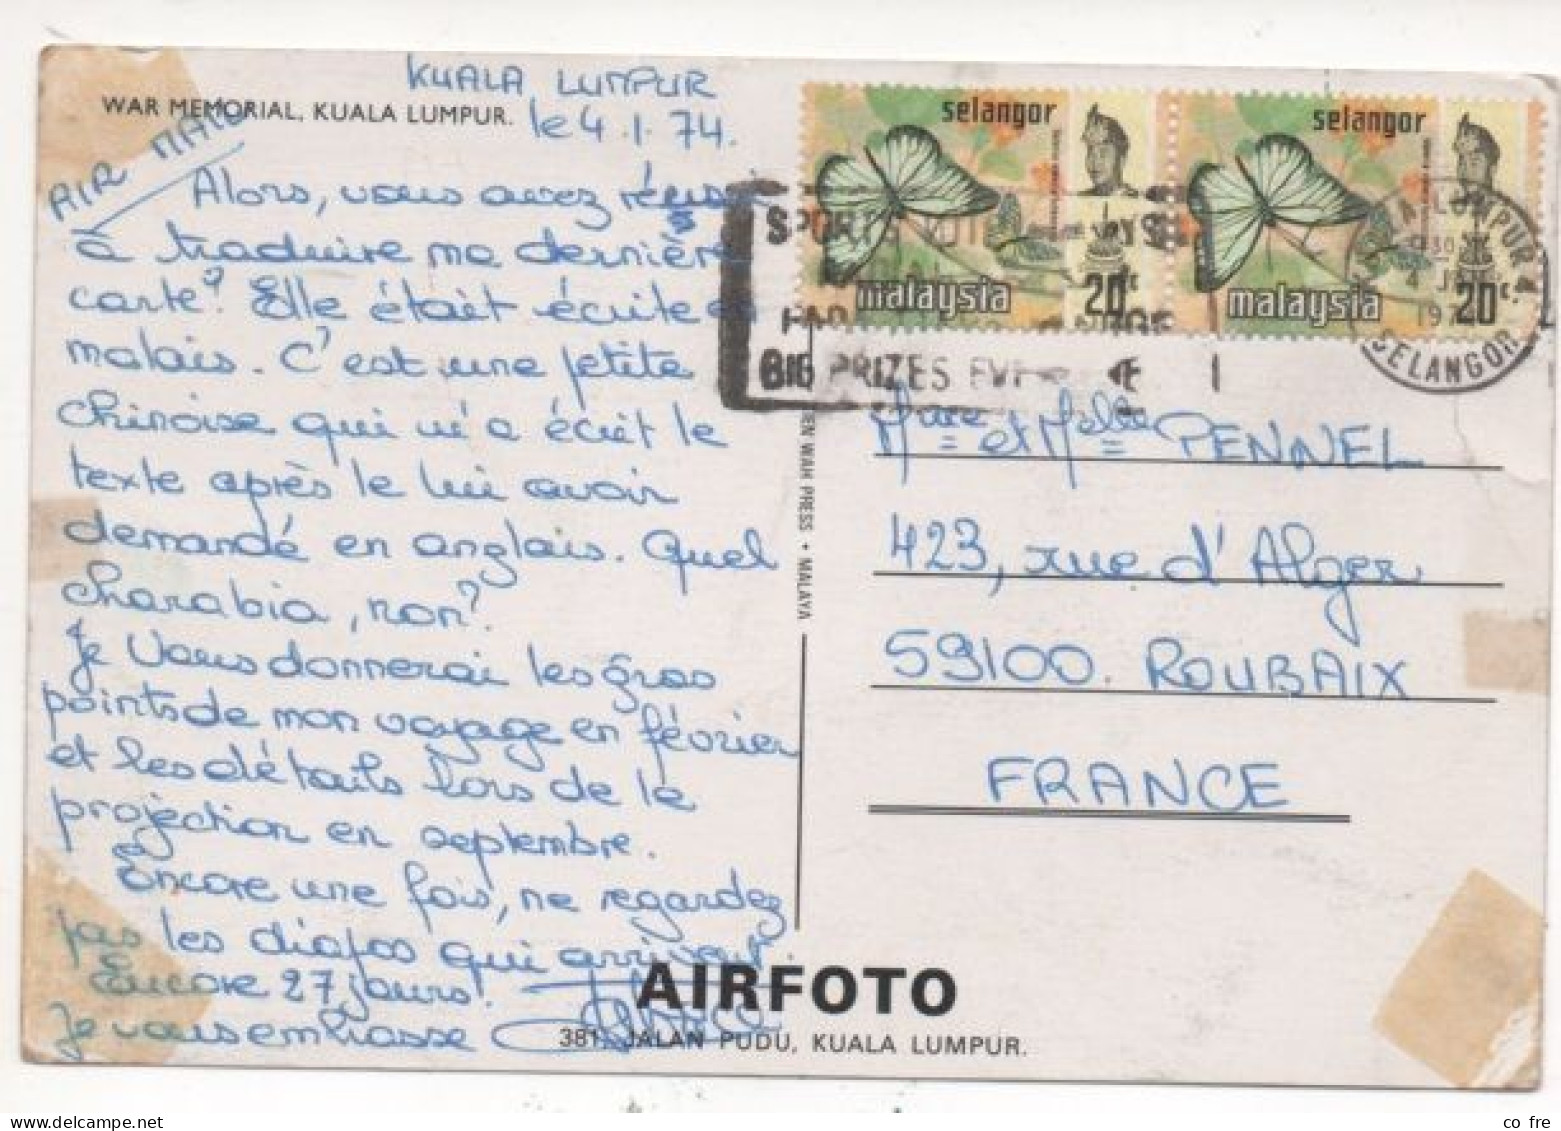 KUALA LUMPUR
WAR MEMORIAL, KUALA LUMPUR.
le 4.1.74.
AIR MAIL
Alors, vous avez réussi
à traduire ma dernière
carte? Elle était écrite en
malais. C'est une petite
chinoise qui m'a écrit le
texte après le lui avoir
demandé en anglais. Quel
charabia, non?
Je vous donnerai les gros
points de mon voyage en février
et les détails lors de la
projection en septembre.
Encore une fois, ne regardez
pas les diapos qui arrivent.
Encore 27 jours.
Je vous embrasse
selangor
malaysia
20c
selangor
malaysia
20c.
KUALA LUMPUR
4 JAN
197
SELANGOR
BIG PRIZES
EN WAH PRESS • MALAYA
Mme et Melle PENNEL
423, rue d'Alger
59100. ROUBAIX
FRANCE
AIRFOTO
381, JALAN PUDU, KUALA LUMPUR.
co fre